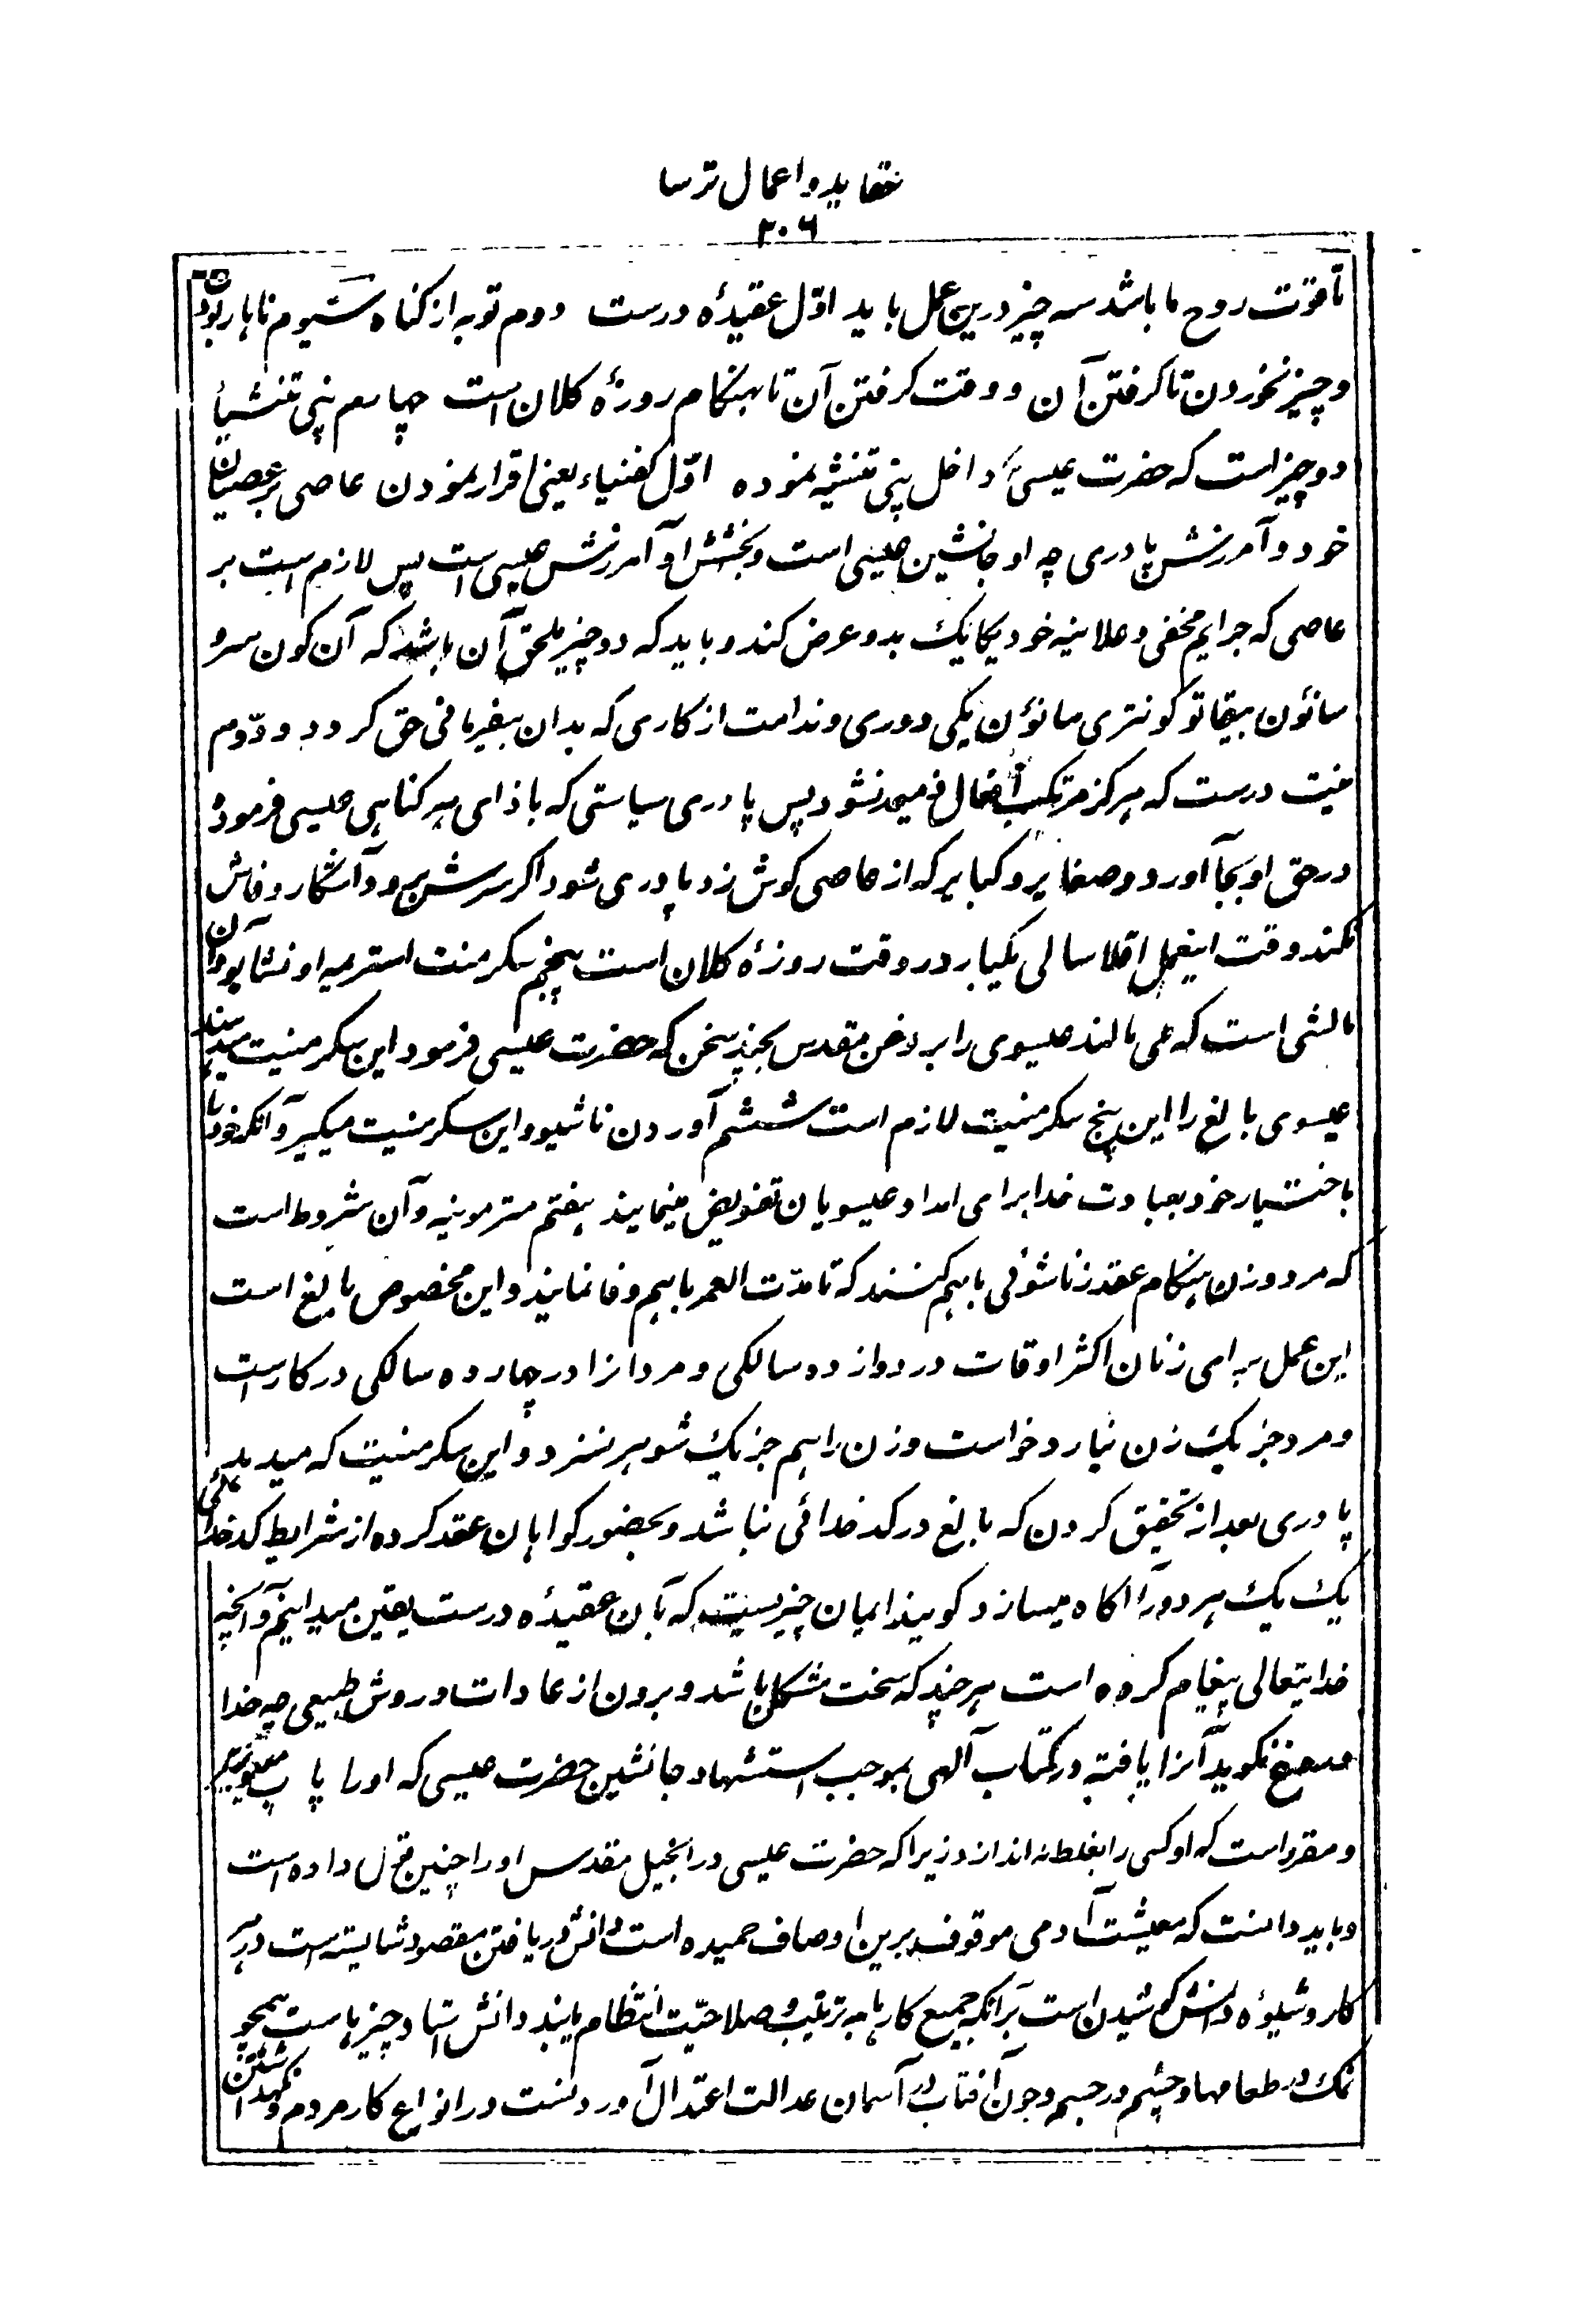 عقاید و اعمال ترسا
۳۰۶
تا قوّت روح ما باشد سه چیز درین عمل باید اوّل عقیدهٔ درست دوم توبه از کناه سیوم ناهار بودن
و چیز نخوردن تا کرفتن آن و وقت کرفتن آن تا بهنکام روزهٔ کلان است چهارم پنی تنشیا
دو چیز است که حضرت عیسیٰ داخل پنی تنشیه نموده اوّل کفنیاء یعنی اقرار نمودن عاصی بر عصیان
خود و آمرزش پادری چه او جانشین عیسی است و بخشش او آمرزش عیسی است پس لازم است بر
عاصی که جرایم مخفی و علانیه خود یکایک بدو عرض کند و باید که دو چیز ملحق آن باشد که آن کون سرو
سائون بیقاتو کونتری سائون یکی دوری و ندامت از کاری که بدان بیفرمانی حق کردد و دوّم
نیت درست که هرکز مرتکب افعال ذمیمه نشود پس پادری سیاستی که باذای هر کناهی عیسی فرموده
در حق او بجا آورد و صغایر و کبایر که از عاصی کوش زد پادری شود اکر سرش برود آشکار و فاش
نکند وقت اینعمل اقلا سالی یکبار در وقت روزهٔ کلان است پنجم سکرمنت استرمیه اونشایو و آن
مالشی است که می مالند عیسوی را بروغن مقدس بجز سخن که حضرت عیسی فرمود این سکرمنیت میدهند
عیسوی بالغ را این پنج سکرمنیت لازم است ششم آوردن ناشیو و این سکرمنیت میکیر آنانکه خود را
باختیار خود بعبادت خدا برای امداد عیسویان تفویض مینمایند هفتم مترمونیه و آن شروط است
که مرد و زن هنکام عقد زناشوئی باهم کنند که تا مدّت العمر باهم وفا نمایند و این مخصوص بالغ است
این عمل برای زنان اکثر اوقات در دوازده سالکی و مردانرا در چهارده سالکی در کارست
و مرد جز یک زن نیارد خواست و زن را هم جز یک شوهر نسزد و این سکرمنیت که میدهد
پادری بعد از تحقیق کردن که مانعی در کدخدائی نباشد و بحضور کواهان عقد کرده از شرایط کدخدائی
یک یک هر دو را آکاه میسازد کویند ایمان چیزیست که بآن عقیدهٔ درست یقین میدانیم و آنچه
خدایتعالی پیغام کرده است هرچند که سخت مشکل باشد و برون از عادات و روش طبیعی چه خدا
دروغ نکوید آنرا یافته در کتاب آلهی بموجب استشهاد جانشین حضرت عیسی که او را پاپ میکویند
و مقرر است که او کسی را بغلط نه اندازد زیرا که حضرت عیسی در انجیل مقدس او را چنین قول داده است
و باید دانست که معیشت آدمی موقوف برین اوصاف حمیده است دانش دریافتن مقصود شایسته است در هر
کار و شیوهٔ دانش کوشیدن است برانکه جمیع کارها به ترتیب و صلاحیّت انتظام یابند دانش استاد چیزهاست همچو
نمک در طعامها و چشم در جسم و چون آفتاب در آسمان عدالت اعتدال آوردنست در انواع کار مردم و نکهداشتن